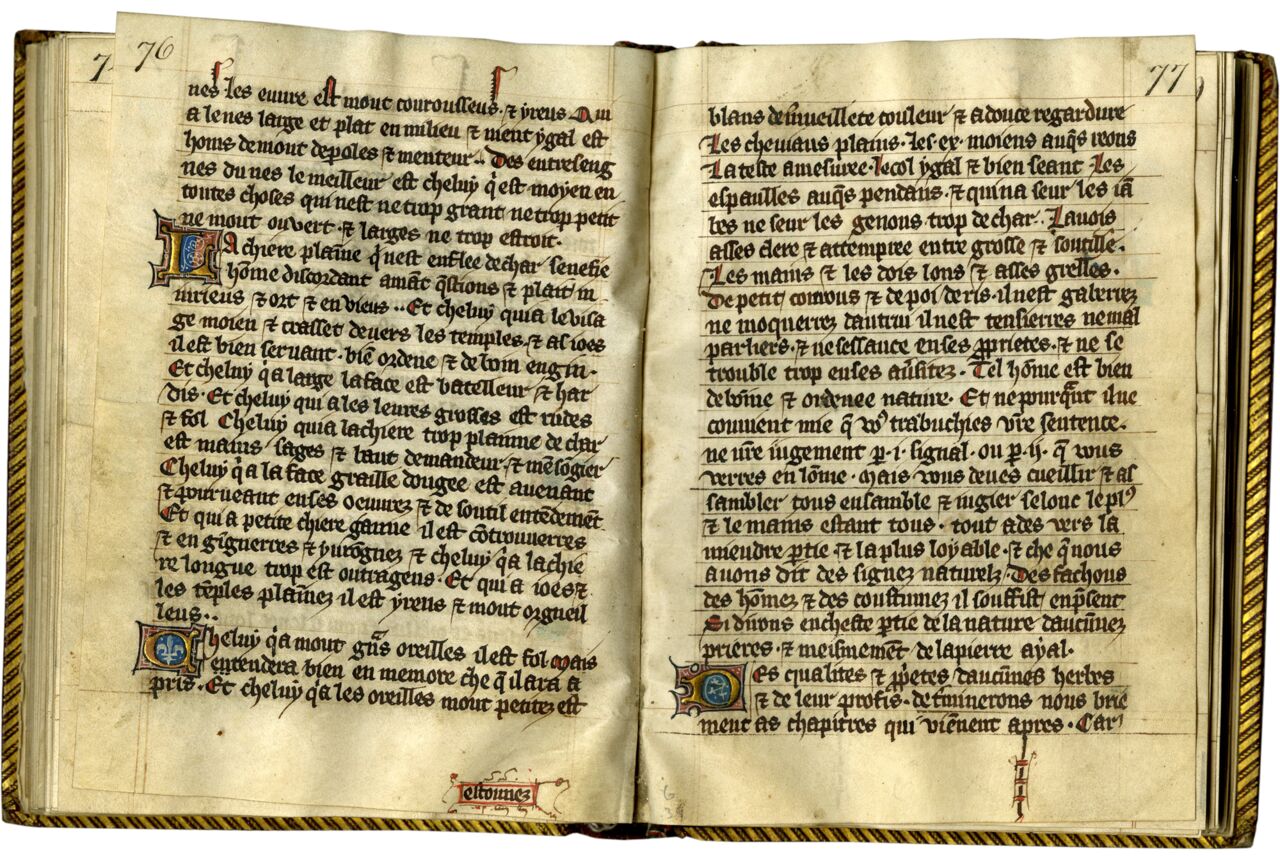 76
nes les euure est mout courousseus. ⁊ yreus Qui
a le nes large et plat en milieu ⁊ ment ygal est
homs de mout de poles ⁊ menteur.. Des entreseng
nes du nes le meilleur est cheluy q̃ est moyen en
toutes choses qui nest ne trop grant ne trop petit
ne mout ouuert. ⁊ larges ne trop estroit.
La chiere plaīne q̃ nest enflee de char senefie
hōme discordant amāt q̄stions ⁊ plait in
iurieus ⁊ ort ⁊ en vieus.. Et cheluy qui a le visa
ge moien ⁊ crasset deuers les temples. ⁊ as ioes
il est bien seruant. biē ordene ⁊ de boin engin.
Et cheluy q̃ a large la face est batelleur ⁊ har
dis. Et cheluy qui a les leures grosses est rudes
⁊ fol Cheluy qui a la chiere trop plainne de char
est mains sages ⁊ baut demandeur. ⁊ mēsōgier
Cheluy q̃ a la face graille dougee est auenant
⁊ pourueant en ses oeuurez ⁊ de soutil entēdemēt
Et qui a petite chiere gaune il est cōtrouuerres
⁊ en gignerres ⁊ yurognez ⁊ cheluy q̃ a la chie
re longue trop est outragens. Et qui a ioes ⁊
les tēples plaīnez il est yreus ⁊ mout orgueil
leus..
Cheluy q̃ a mout grās oreilles il est fol mais
entendera bien en memore che q̃ il ara a
pris. Et cheluy q̃ a les oreilles mout petitez est
estonnez
77
blans de ⁊ uueillete couleur ⁊ a douce regardure
Les cheuiaus plains. les ex. moiens auq̄s reons
La teste amesuree. le col ygal ⁊ bien seant Les
espaulles auq̄s pendans. ⁊ qui na seur les iā
bes ne seur les genous trop de char. La uois
asses clere ⁊ attempree entre grosse ⁊ soutille.
Les mains ⁊ les dois lons ⁊ asses grelles.
De petit conuous ⁊ de poi de ris. il nest gaberrez
ne moquerrez dautrui il nest tensierres ne mal
parliers. ⁊ ne sessauce en ses p̄prietes. ⁊ ne se
trouble trop en ses Tel hōme est bien
de boīne ⁊ ordenee nature. Et ne pourq̄nt il ne
conuient mie q̃ vꝰ trabuchies vr̄e sentence.
ne vr̄e iugement p. i. signal. ou p. ij. q̃ vous
verres en lōme. Mais vous deues cueillir ⁊ as
sambler tous ensamble ⁊ iugier selonc le plꝰ
⁊ le mains estant tous. tout ades vers la
miendre ptie ⁊ la plus loyable. ⁊ che q̃ nous
auons dit des signez naturelz. Des fachons
des hōmez ⁊ des coustumez il souffist en p̄sent
Si dirons en cheste ptie de la nature daucūnez
prieres. ⁊ meismemēt de la pierre ayal.
Des qualites ⁊ p̄p̄etes daucūnes herbes
⁊ de leur profis. det̄minerons nous brie
ment as chapitres qui viēnent apres. Car